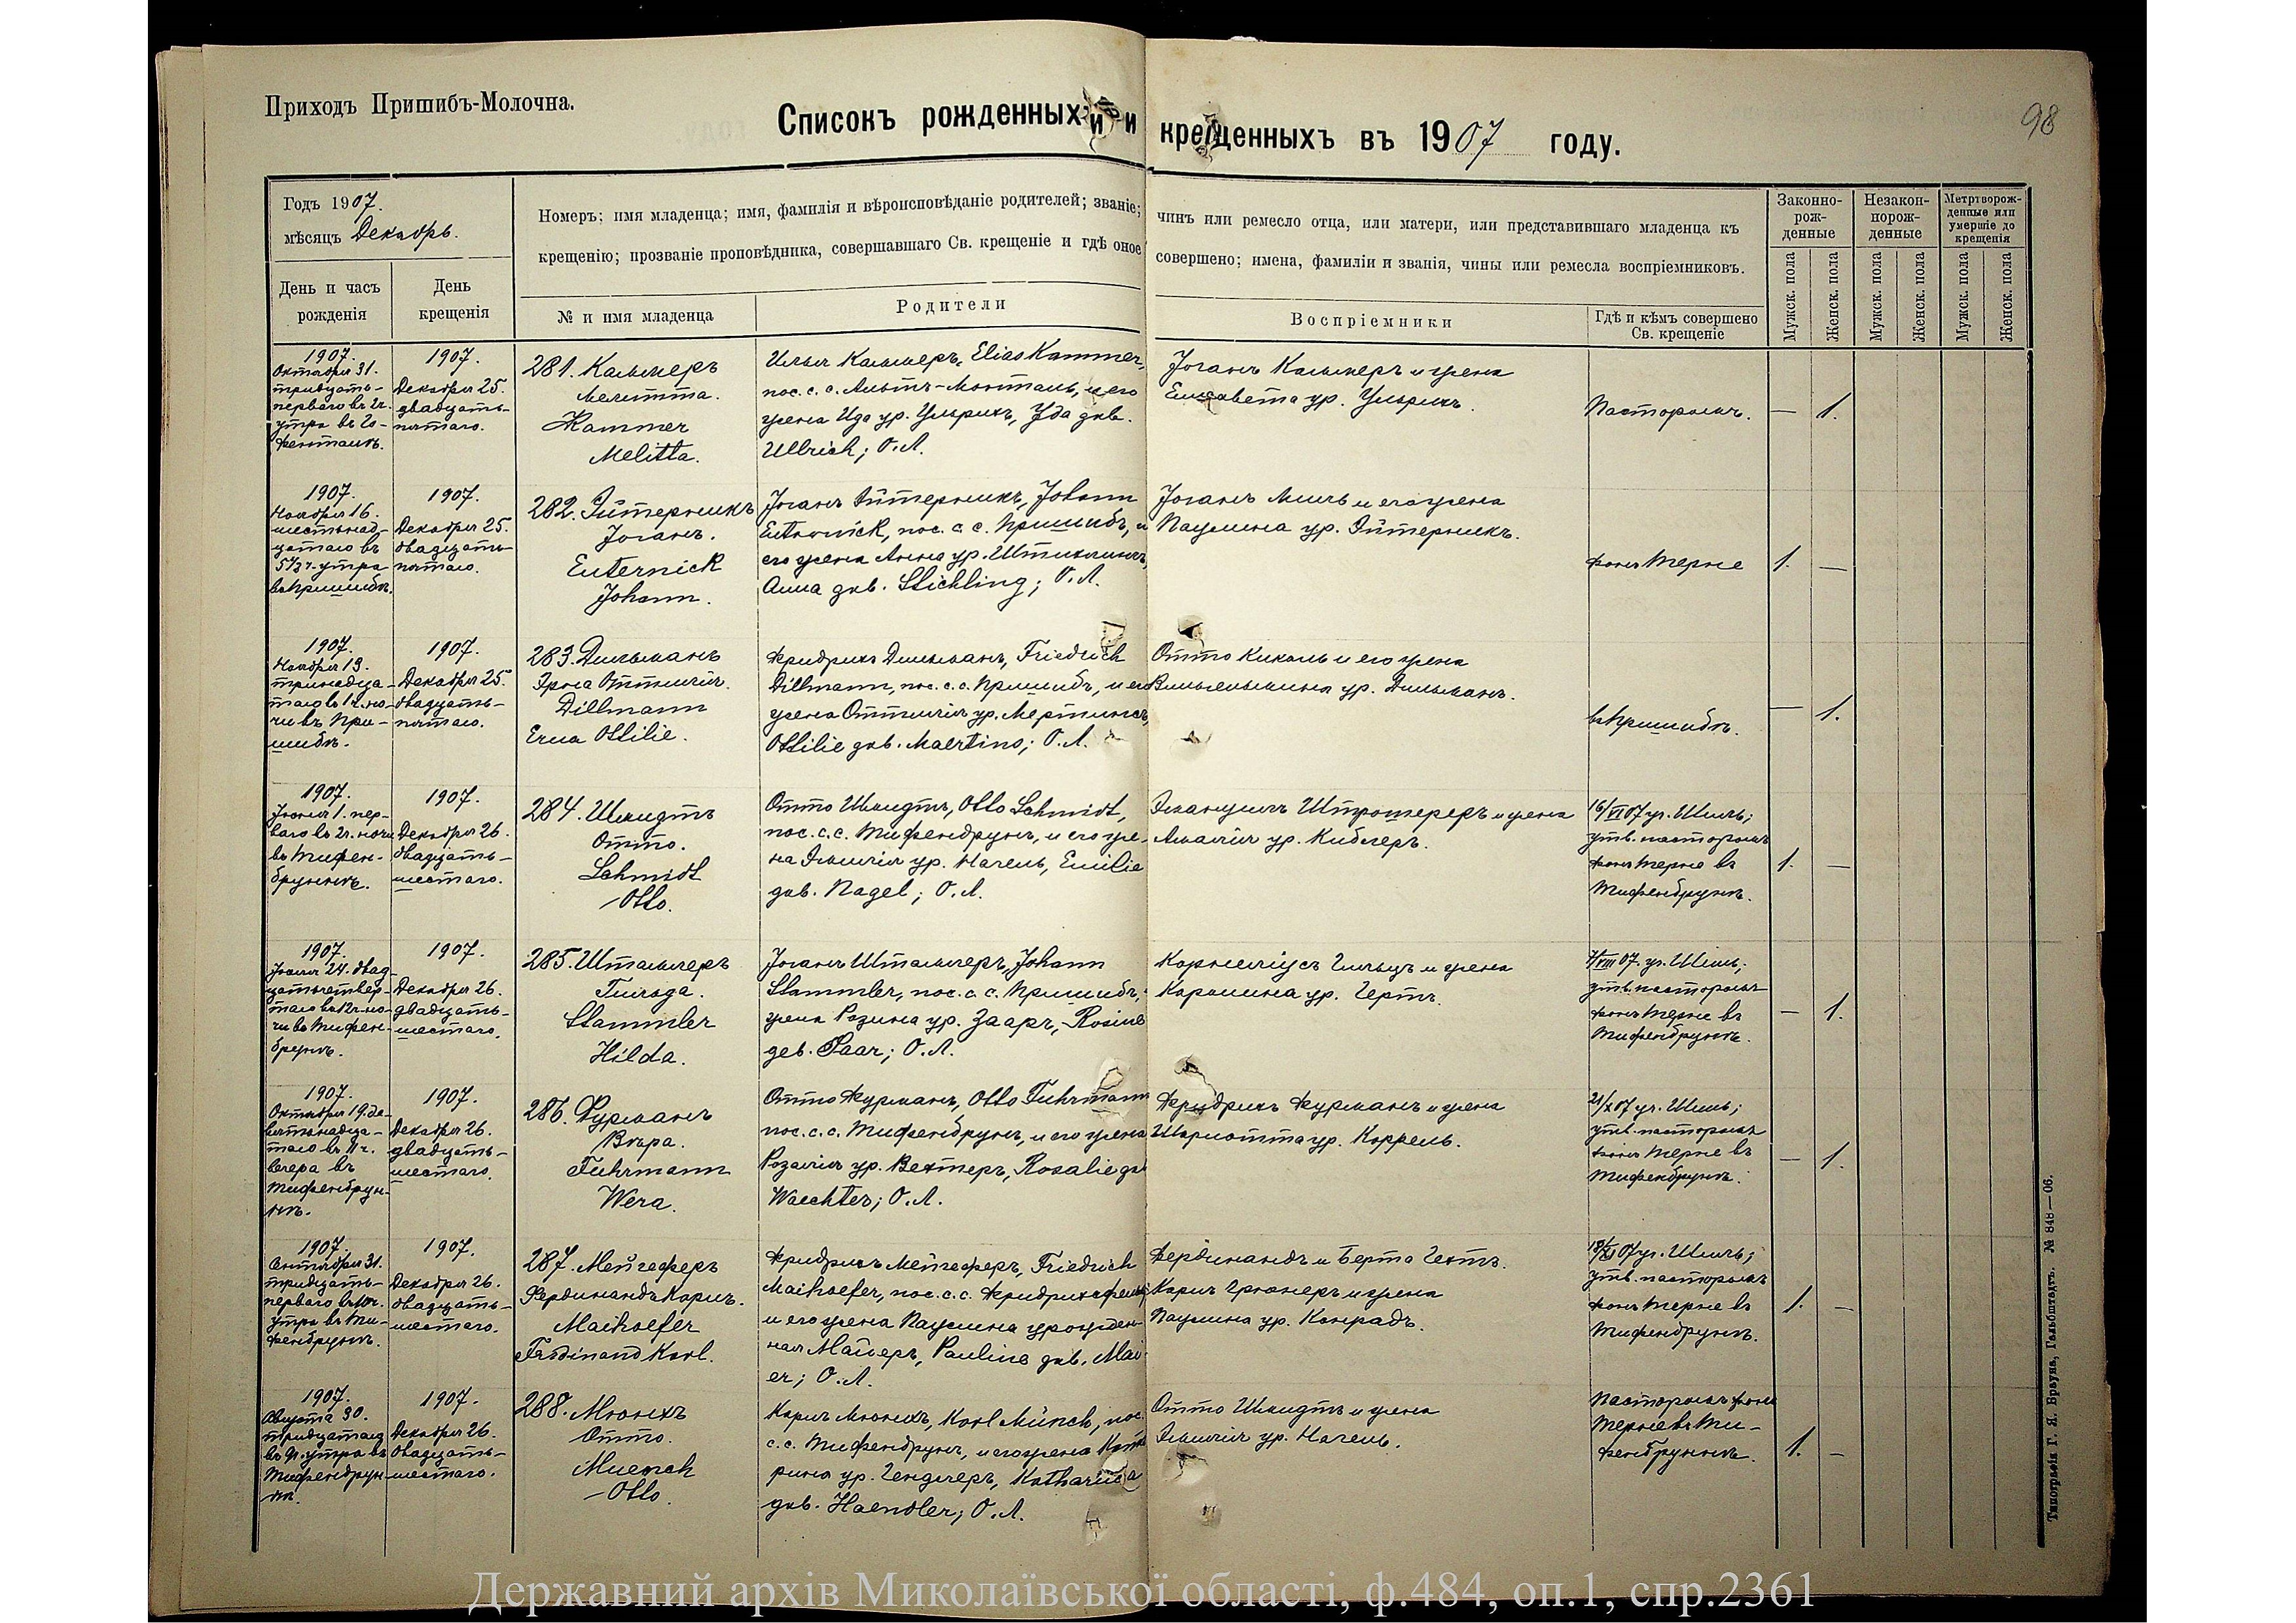 Приходъ Пришибъ-Молочна.
98
Списокъ рожденныхъ и крещенныхъ въ 1907 году.
Годъ 1907.
мѣсяцъ Декабрь.
Номеръ; имя младенца; имя, фамилія и вѣроисповѣданіе родителей; званіе; чинъ или ремесло отца, или матери, или представившаго младенца къ
крещенію; прозваніе проповѣдника, совершавшаго Св. крещеніе и гдѣ оное совершено; имена, фамиліи и званія, чины или ремесла воспріемниковъ.
День и часъ
рожденія
День
крещенія
№ и имя младенца
Родители
Воспріемники
Гдѣ и кѣмъ совершено
Св. крещеніе
Законно-
рож-
денные
Незакон-
норож-
денные
Метртворож-
денные или
умершіе до
крещенія
Мужск. пола
Женск. пола
Мужск. пола
Женск. пола
Мужск. пола
Женск. пола
1907.
Октября 31.
тридцать-
перваго въ 2ч.
утра въ Го-
фенталѣ.
1907.
Декабря 25.
двадцать-
пятаго.
281. Каммеръ
Мелитта.
Kammer
Melitta.
Илья Каммеръ, Elias Kammer,
пос. с. с. Альтъ-Монталь, и его
жена Ида ур. Ульрихъ, Ida gub.
Ullrich; О.Л.
Іоганъ Каммеръ и жена
Елисавета ур. Ульрихъ.
Пасторомъ.
— 1.
1907.
Ноября 16.
шестьнад-
цатаго въ
5½ч. утра
въ Пришибѣ.
1907.
Декабря 25.
двадцать-
пятаго.
282. Эйтерникъ
Іоганъ.
Euternick
Johann.
Іоганъ Эйтерникъ, Johann
Euternick, пос. с. с. Пришибъ, и
его жена Анна ур. Штихлингъ,
Anna gub. Stichling; О.Л.
Іоганъ Миль и его жена
Паулина ур. Эйтерникъ.
фонъ Терне
1. —
1907.
Ноября 13.
тринадца-
таго въ 1ч. но-
чи въ При-
шибѣ.
1907.
Декабря 25.
двадцать-
пятаго.
283. Дильманъ
Эрна Оттилія.
Dillmann
Erna Ottilie.
Фридрихъ Дильманъ, Friedrich
Dillmann, пос. с. с. Пришибъ, и его
жена Оттилія ур. Мертинсъ,
Ottilie gub. Maertins; О.Л.
Отто Киколь и его жена
Вильгельмина ур. Дильманъ.
въ Пришибѣ.
— 1.
1907.
Іюня 1. пер-
ваго въ 2ч. ночи
въ Тифен-
бруннѣ.
1907.
Декабря 26.
двадцать-
шестаго.
284. Шмидтъ
Отто.
Schmidt
Otto.
Отто Шмидтъ, Otto Schmidt,
пос. с. с. Тифенбрунъ, и его же-
на Эмилія ур. Нагель, Emilie
gub. Nagel; О.Л.
Эмануилъ Штротереръ и жена
Амалія ур. Киблеръ.
16/VI 07 уч. Шиль;
утв. пасторомъ
фонъ Терне въ
Тифенбрунѣ.
1. —
1907.
Іюля 24. двад-
цатьчетвер-
таго въ 12ч. но-
чи въ Тифен-
брунѣ.
1907.
Декабря 26.
двадцать-
шестаго.
285. Штаммлеръ
Гильда.
Stammler
Hilda.
Іоганъ Штаммлеръ, Johann
Stammler, пос. с. с. Пришибъ,
жена Розина ур. Зааръ, Rosine
geb. Saar; О.Л.
Корнеліусъ Гильцъ и жена
Каролина ур. Гертъ.
/VIII 07. уч. Шиль;
утв. пасторомъ
фонъ Терне въ
Тифенбрунѣ.
— 1.
1907.
Октября 19. де-
вятьнадца-
таго въ 11ч.
вечера въ
Тифенбрун-
нѣ.
1907.
Декабря 26.
двадцать-
шестаго.
286. Фурманъ
Вѣра.
Fuhrmann
Wera.
Отто Фурманъ, Otto Fuhrmann
пос. с. с. Тифенбрунъ, и его жена
Розалія ур. Вехтеръ, Rosalie gu
Waechter; О.Л.
Фридрихъ Фурманъ и жена
Шарлотта ур. Коppель.
21/X 07 уч. Шиль;
утв. пасторомъ
фонъ Терне въ
Тифенбрунѣ.
— 1.
1907.
31.
тридцать-
перваго въ 10ч.
утра въ Ти-
фенбрунѣ.
1907.
Декабря 26.
двадцать-
шестаго.
287. Мейгеферъ
Фердинандъ Карлъ.
Maihoefer
Ferdinand Karl.
Фридрихъ Мейгеферъ, Friedrich
Maihoefer, пос. с. с. Фридрихсфельдъ
и его жена Паулина урожден-
ная Майеръ, Pauline gub. Mai-
er; О.Л.
Фердинандъ и Берта Гехтъ.
Карлъ Грюнеръ и жена
Паулина ур. Конрадъ.
18/XI 07 уч. Шиль;
утв. пасторомъ
фонъ Терне въ
Тифенбрунѣ.
1. —
1907.
Августа 30.
тридцатаго
въ 9ч. утра въ
Тифенбрун-
нѣ.
1907.
Декабря 26.
двадцать-
шестаго.
288. Мюнхъ
Отто.
Muench
Otto.
Карлъ Мюнхъ, Karl Münch, пос.
с. с. Тифенбрунъ, и его жена Кате-
рина ур. Гендлеръ, Katharina
gub. Haendler; О.Л.
Отто Шмидтъ и жена
Эмилія ур. Нагель.
Пасторомъ фонъ
Терне въ Ти-
фенбруннѣ.
1. —
Типографія Г. Я. Брауна, Гальбштадтъ. № 848—06.
Державний архів Миколаївської області, ф.484, оп.1, спр.2361